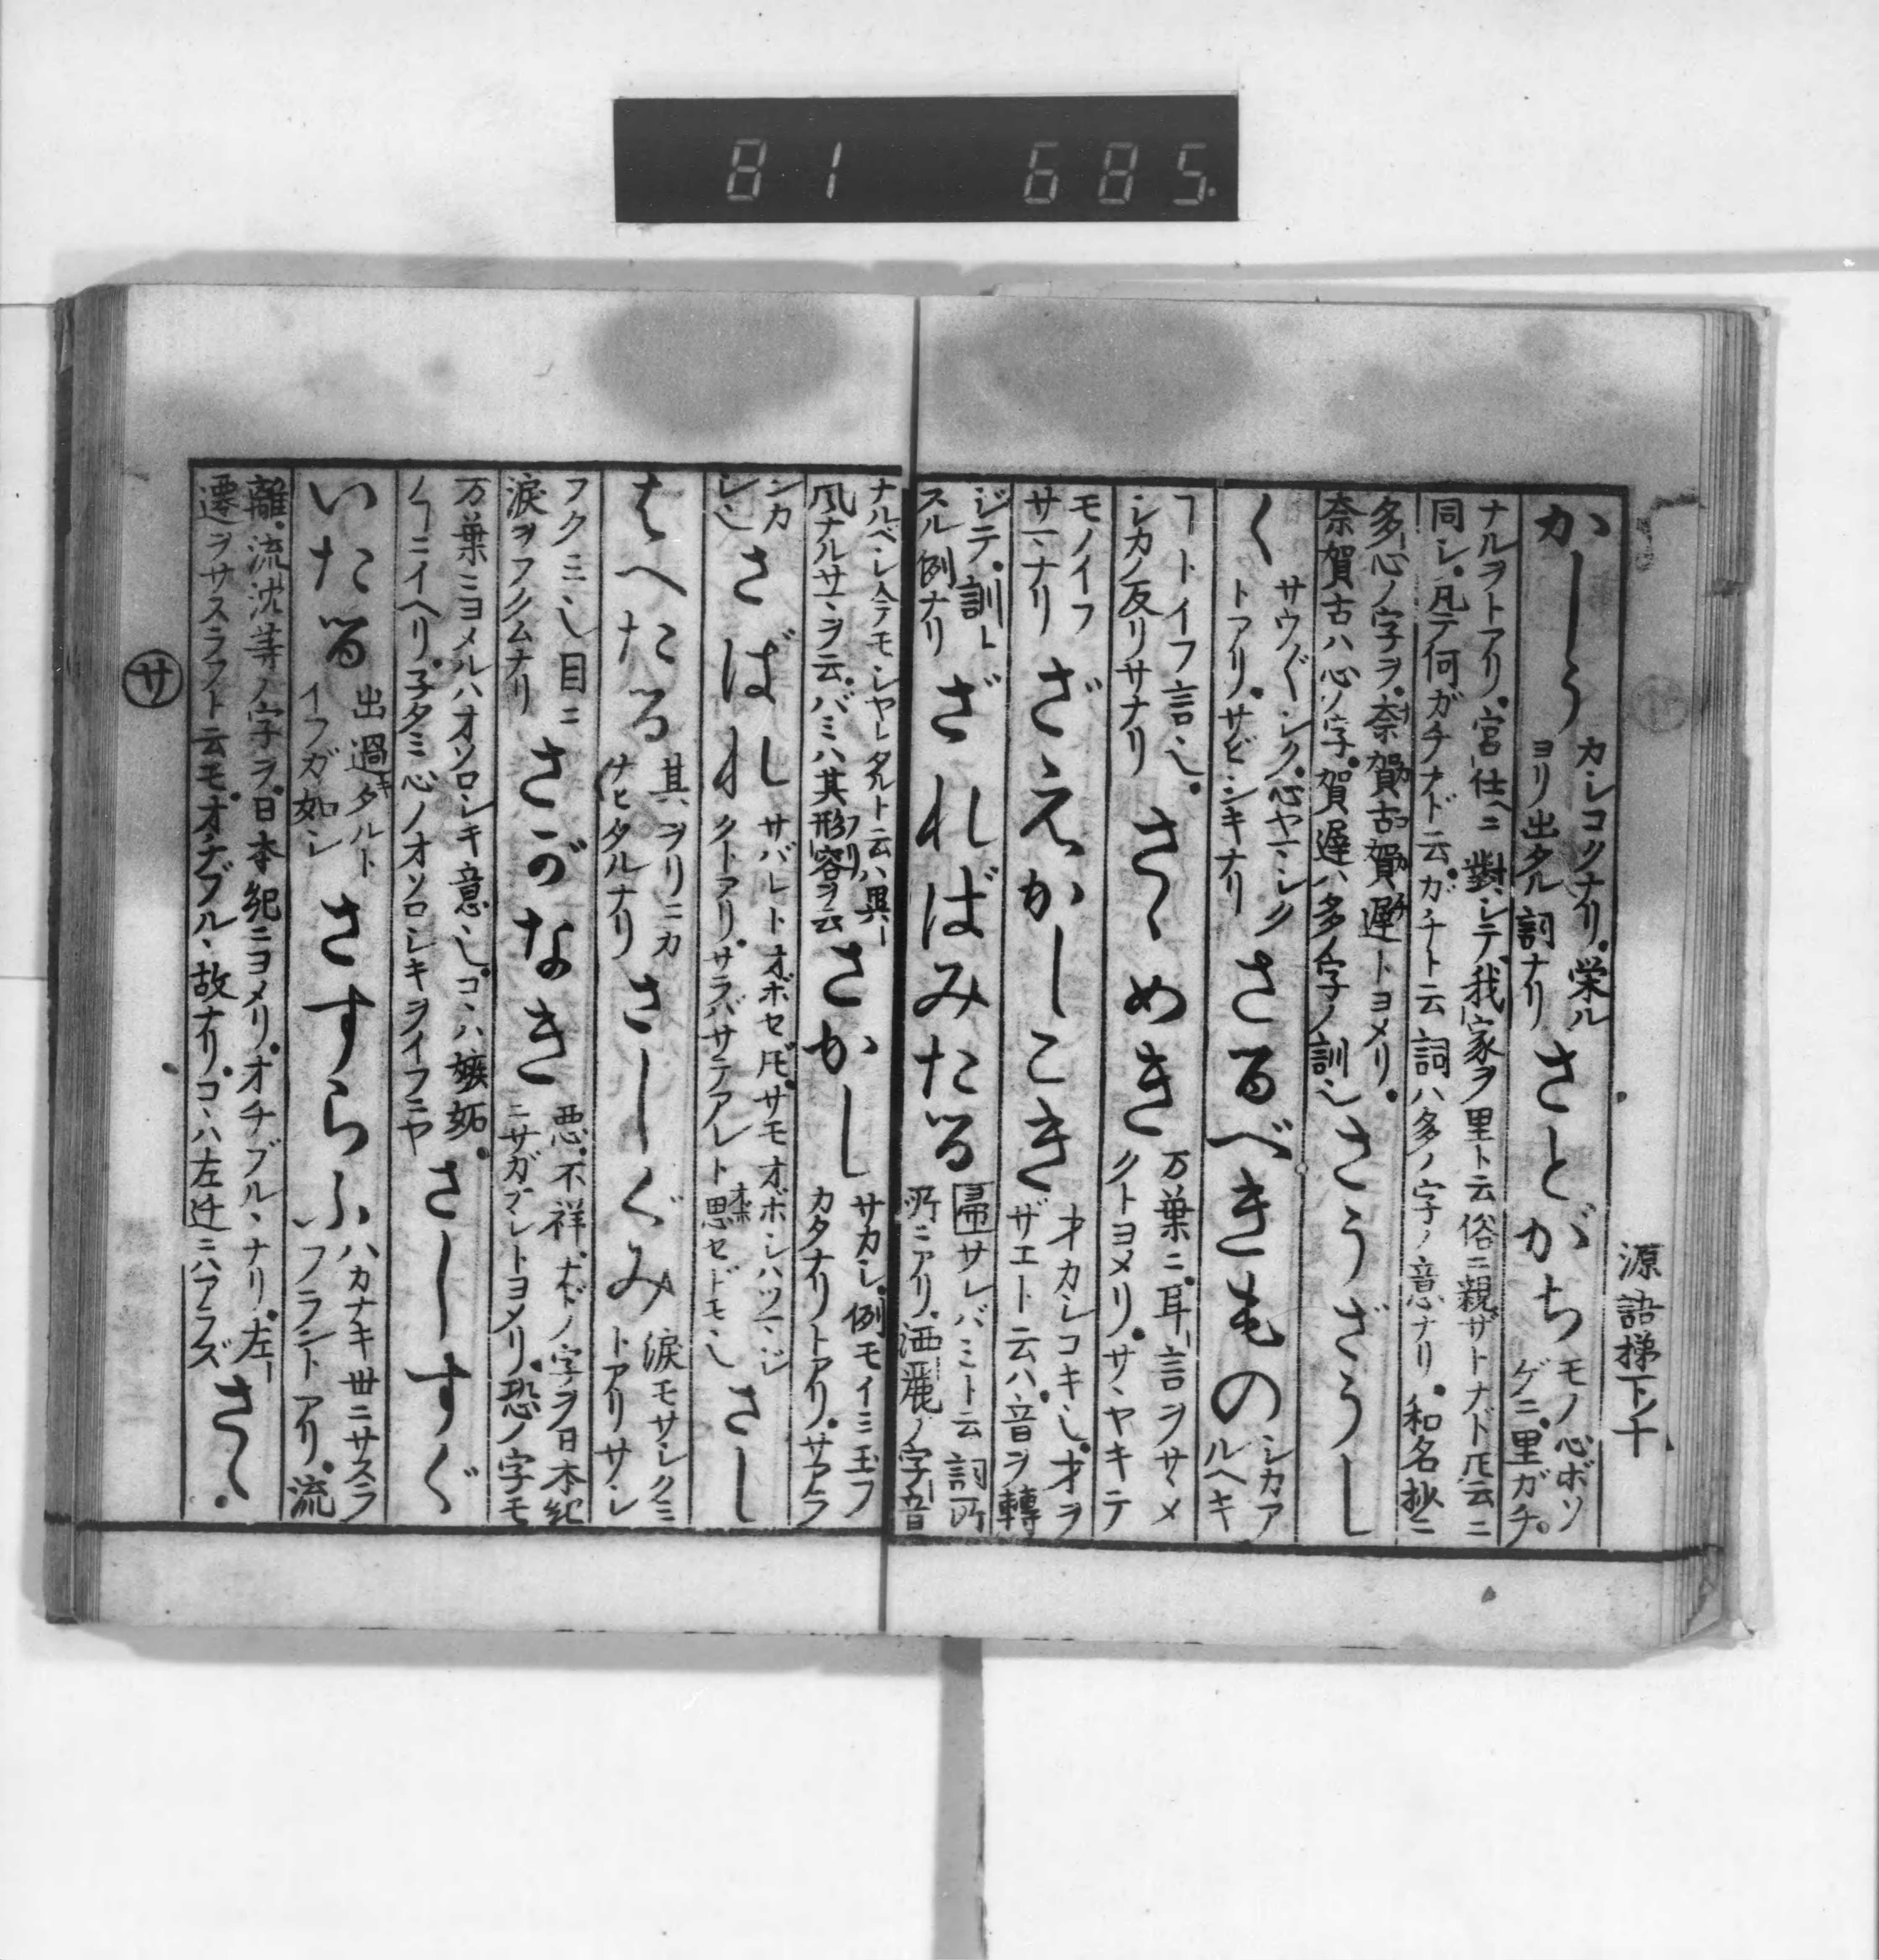 81 685.
源語梯下ノ十
かしう カシコクナリ。栄ル
ヨリ出タル詞ナリ
さとがち モノ心ボソ
ゲニ。里ガチ。
ナルヲトアリ。宮仕ヘニ對シテ我家ヲ里ト云俗ニ親ザトナド匕云ニ
同シ。凡テ何ガチナド云。ガチト云詞ハ多ノ字ノ意ナリ。和名抄ニ
多心ノ字ヲ。奈賀古賀遅トヨメリ。
奈賀古ハ心ノ字。賀遅ハ多ノ字ノ訓也
さうざうし
く サウ〲シク。心ヤマシク
トアリ。サビシキナリ
さるべきもの シカア
ルヘキ
ヿトイフ言也。
シカノ反リサナリ
さゝめき 万葉ニ。耳言ヲサヽメ
クトヨメリ。サヽヤキテ
モノイフ
サマナリ
ざえかしこき 才カシコキ也。才ヲ
ザエト云ハ音ヲ轉
ジテ。訓ト
スル例ナリ
ざればみたる 帚サレバミト云詞所
所ニアリ。洒麗ノ字音
ナルベシ今テモシヤレタルト云ハ異ー
風ナルサマヲ云。バミハ其形容ヲ云
さかし サカシ。例モイミ玉フ
カタナリトアリ。サアラ
シカ
シ也
さばれ サバレトオボセ𪜈。サモオボシハツマジ
クトアリ。サラバサテアレト思セドモ也
さし
はへたる 其ヲリニカ
ナヒタルナリ
さしぐみ 涙モサシクミ
トアリサシ
フクミ也目ニ
涙ヲフクムナリ
さがなき 悪。不祥。ナドノ字ヲ日本紀
ニサガナシトヨメリ。恐ノ字モ
万葉ニヨメルハオソロシキ意也。コヽハ嫉妬。
ノヿニイヘリ。子タミ心ノオソロシキヲイフニヤ
さしすぐ
いたる 出過タルト
イフガ如シ
さすらふ ハカナキ丗ニサスラ
フラントアリ。流
離。流沈等ノ字ヲ。日本紀ニヨメリ。オチブルヽナリ。左ー
遷ヲサスラフト云モ。オチブルヽ故ナリ。コヽハ左迁ニハアラズ
さゝ
サ